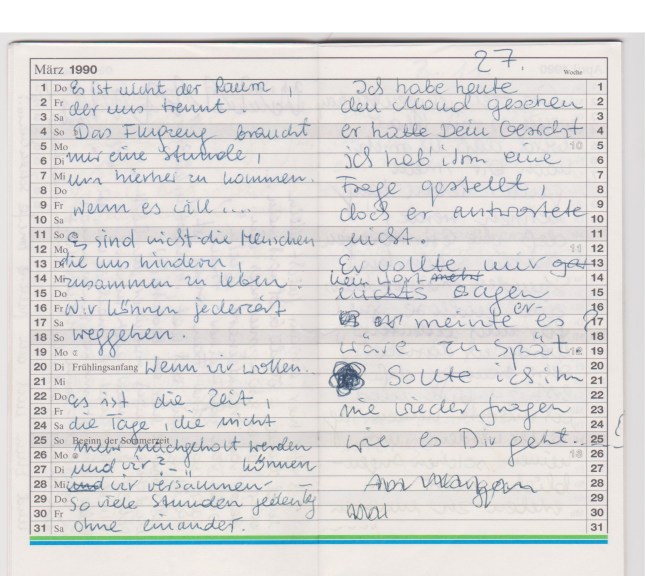 März 1990
27.
Woche
1 Do Es ist nicht der Raum,
2 Fr der uns trennt.
3 Sa
4 So Das Flugzeug braucht
5 Mo nur eine Stunde,
6 Di
7 Mi um hierher zu kommen.
8 Do
9 Fr Wenn es will....
10 Sa
11 So Es sind nicht die Menschen
12 Mo
13 Di die uns hindern,
14 Mi zusammen zu leben.
15 Do
16 Fr Wir können jederzeit
17 Sa
18 So weggehen.
19 Mo
20 Di Frühlingsanfang Wenn wir wollen.
21 Mi
22 Do es ist die Zeit,
23 Fr
24 Sa die Tage, die nicht
25 So Beginn der Sommerzeit
26 Mo mehr nachgeholt werden
können
27 Di und wir?
28 Mi und wir versäumen
29 Do so viele Stunden
30 Fr
31 Sa ohne einander.
Ich habe heute 1
den Mond gesehen 2
3
er hatte Dein Gesicht 4
10 5
ich hab' ihm eine 6
7
Frage gestellt, 8
9
doch er antwortete 10
nicht. 11
11 12
Er wollte mir gar 13
kein Wort mehr 14
nichts sagen 15
er 16
meinte es 17
18
wäre zu spät 19
20
Sollte ich ihn 21
22
nie wieder fragen 23
24
wie es Dir geht... 25
26
27
28
29
30
31